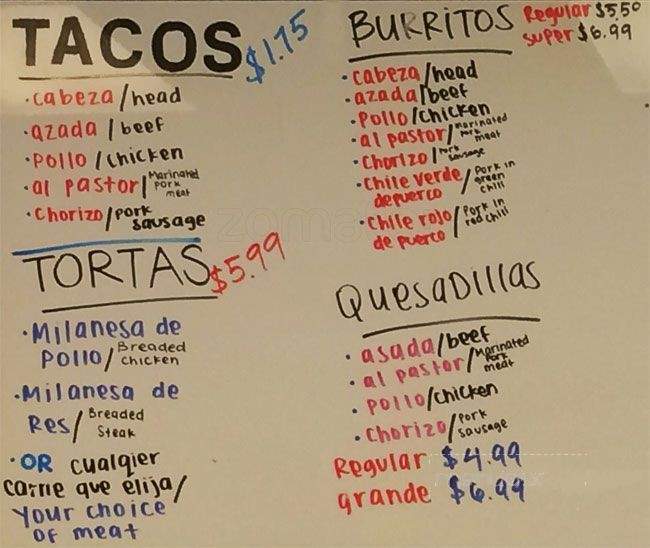 TACOS $1.75
·cabeza/head
·azada/beef
·Pollo/chicken
·al pastor/Marinated pork meat
·chorizo/pork sausage
TORTAS $5.99
·Milanesa de
Pollo/Breaded chicken
·Milanesa de
Res/Breaded Steak
·OR cualqier
carne que elija/
your choice
of meat
BURRITOS Regular $5.50
super $6.99
·cabeza/head
·azada/beef
·Pollo/chicken
·al pastor/marinated pork meat
·chorizo/pork sausage
·Chile verde
de puerco/Pork in green chili
·Chile rojo
de puerco/Pork in red chili
Quesadillas
·asada/beef
·al pastor/Marinated pork meat
·pollo/chicken
·chorizo/pork sausage
Regular $4.99
grande $6.99